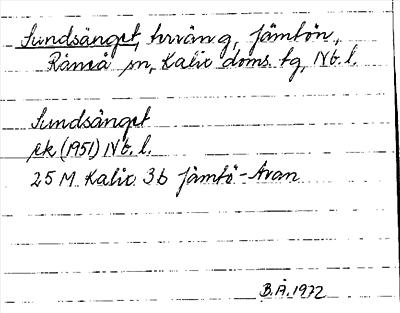 Sundsänget, hrväng, Jämtön,
Råneå sn, Kalix doms. tg, Nb. l.
Sundsänget
ek (1951) Nb. l.
25 M Kalix 3b Jämtö-Avan
B.Å. 1972